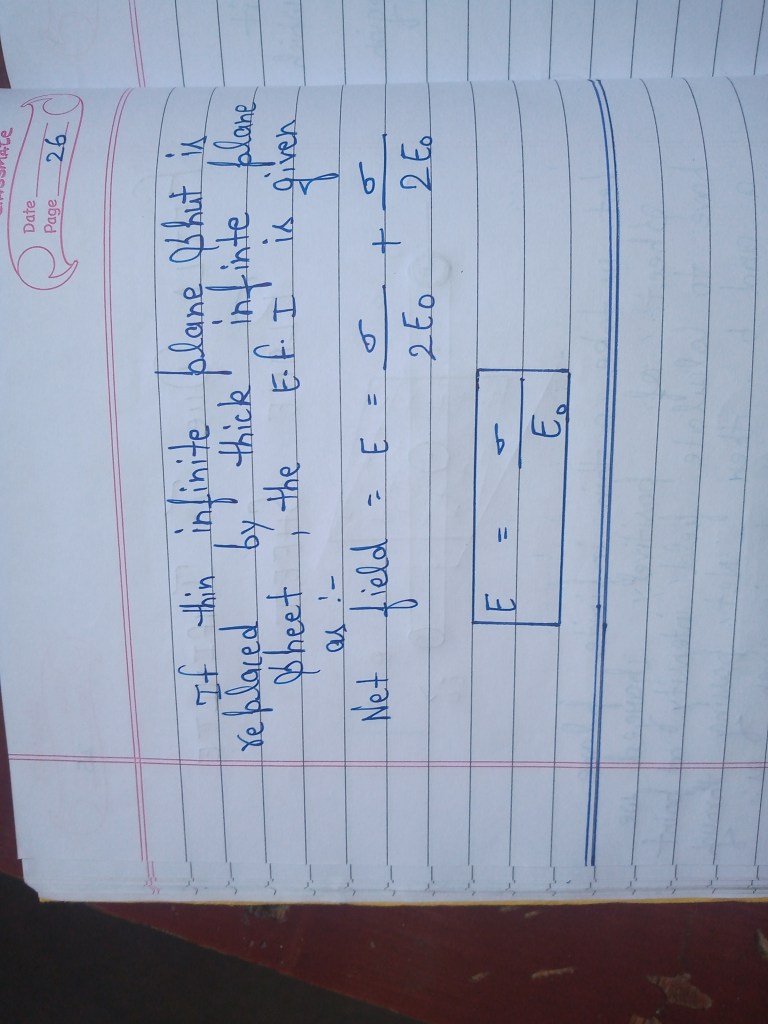 CLASSMATE
Date
Page 26
If thin infinite plane shut is
replaced by thick infinte plane
sheet, the E.f.I is given
as :-
Net field = E = σ/2E₀ + σ/2E₀
E = σ/E₀